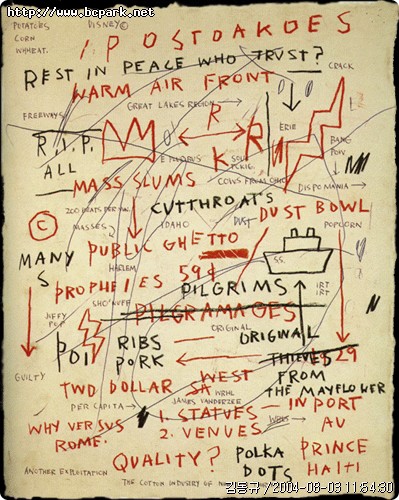 http://www.bcpark.net
POTATOES
DISNEY©
CORN
WHEAT.
POSTOAKOES
REST IN PEACE WHO TRUST?
WARM AIR FRONT
CRACK
GREAT LAKES REGION
FREEWAYS
R
ERIE
R.I.P.
E PLURIBUS
K
R
BANG
POW
ALL
MASS SLUMS
COWS FROM OHIO
DISPOMANIA
CUTTHROATS
©
MASSES
IDAHO
DUST
DUST BOWL
MANY
PUBLIC GHETTO
POPCORN
S
HARLEM
SS.
PROPHECIES 59¢
PILGRIMS
IRT
IRT
SHO'NUFF
JIFFY
POP
PILGRAMAGES
ORIGINAL
POI
RIBS
ORIGINAL
PORK
THIEVES
1529
GUILTY
WEST
FROM
TWO DOLLAR
THE MAYFLOWER
PER CAPITA
JAMES VANDERZEE
WHY VERSUS
ROME.
1. STATUES
IN PORT
2. VENUES
AU
QUALITY?
POLKA
DOTS
PRINCE
HAITI
ANOTHER EXPLOITATION
THE COTTON INDUSTRY OF
김동규/2004-08-03 11:54:30